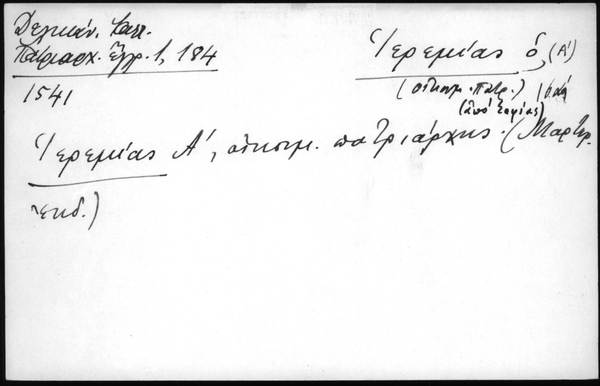 Δελικάν. Καλλ.
Πατριαρχ. Ἔγγρ. 1, 184
1541
Ἱερεμίας ὁ, (Α΄)
(οἰκουμ. Πατρ.)
(ἀπό Σοφίας)
Ἱερεμίας Α΄, οἰκουμ. πατριάρχης. (Μαρτυρ.
ἐκδ.)